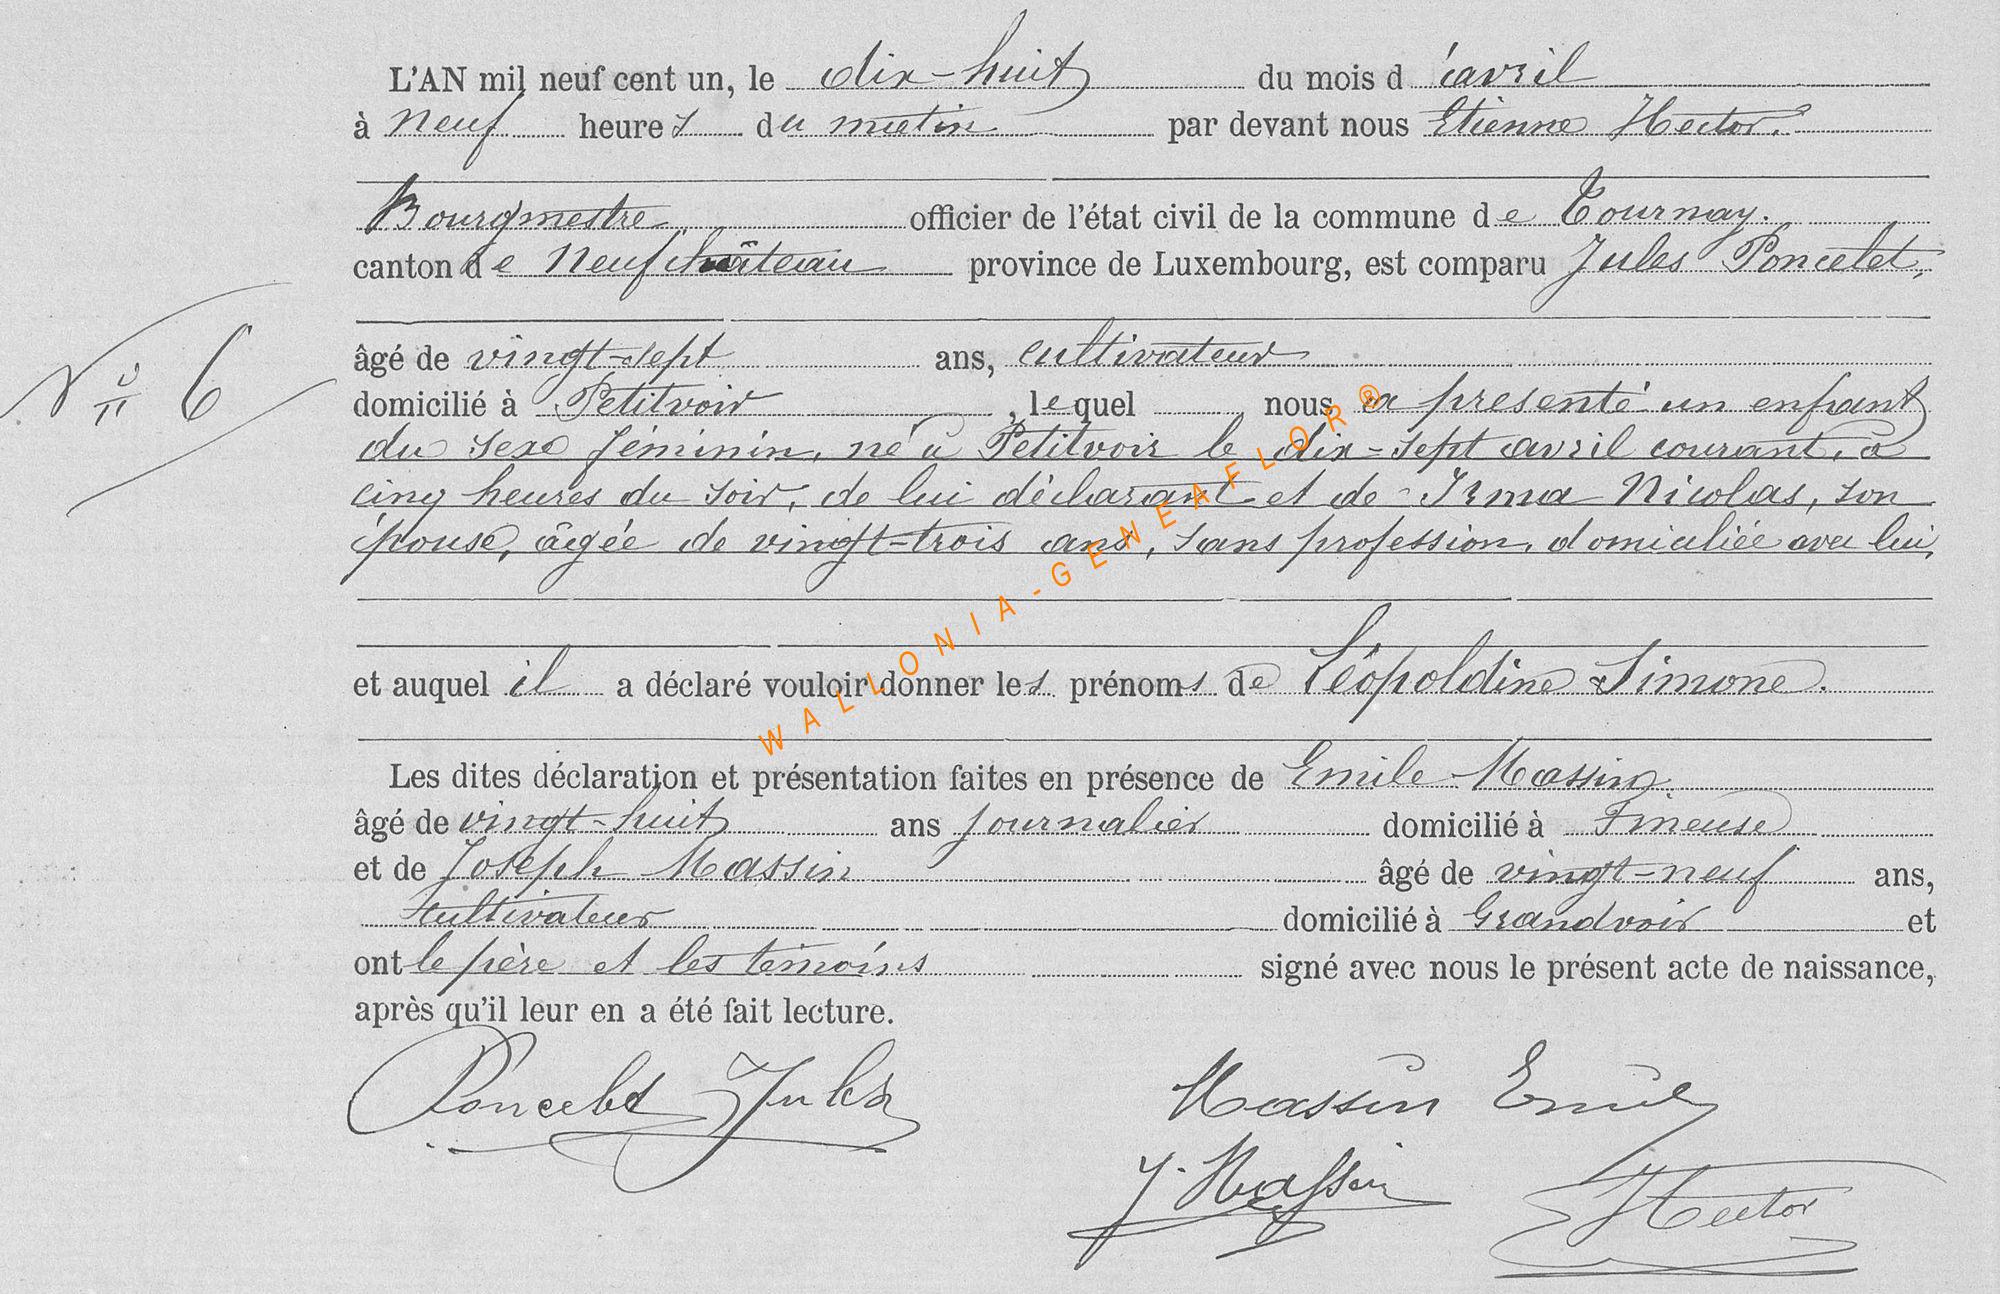 L'AN mil neuf cent un, le dix-huit du mois d'avril
à neuf heures du matin par devant nous Etienne Hector.
Bourgmestre officier de l'état civil de la commune de Tournay.
canton de Neufchâteau province de Luxembourg, est comparu Jules Poncelet,
N° 6
âgé de vingt-sept ans, cultivateur
domicilié à Petitvoir, lequel nous a présenté un enfant
du sexe féminin, né à Petitvoir le dix-sept avril courant, à
cinq heures du soir, de lui déclarant et de Irma Nicolas, son
épouse, âgée de vingt-trois ans, sans profession, domiciliée avec lui,
et auquel il a déclaré vouloir donner les prénoms de Léopoldine Simone.
Les dites déclaration et présentation faites en présence de Emile Massin
âgé de vingt-huit ans journalier domicilié à Fineuse
et de Joseph Massin âgé de vingt-neuf ans,
cultivateur domicilié à Grandvoir et
ont le père et les témoins signé avec nous le présent acte de naissance,
après qu'il leur en a été fait lecture.
Poncelet Jules Massin Emile
J. Massin Hector
WALLONIA-GENEAFLOR®